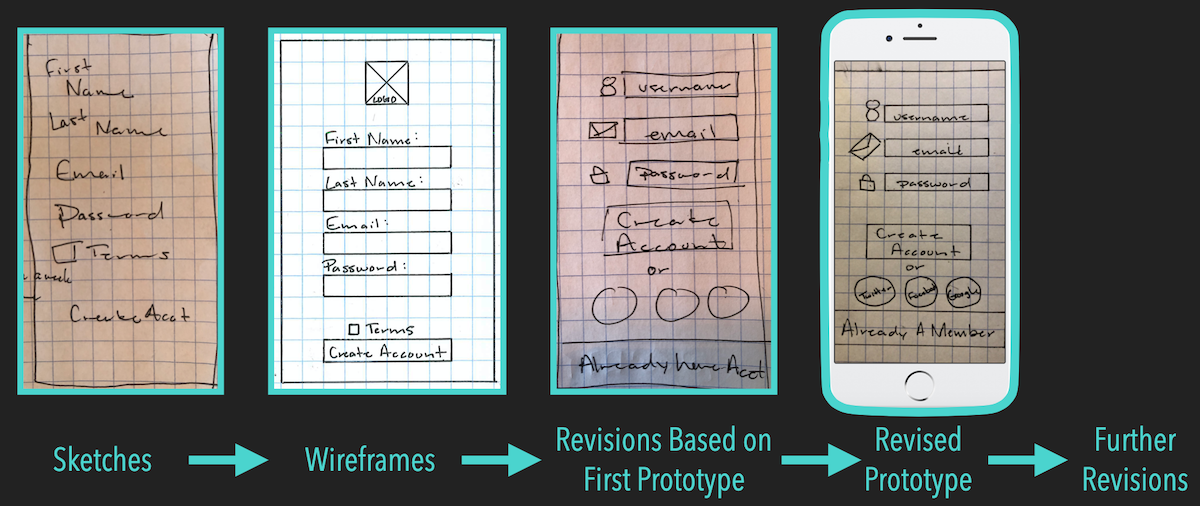 First
Name
Last
Name
Email
Password
Terms
a week
Create Acct
LOGO
First Name:
Last Name:
Email:
Password:
Terms
Create Account
username
email
password
Create
Account
or
Already have Acct
username
email
password
Create
Account
or
Twitter Facebook Google
Already A Member
Sketches
Wireframes
Revisions Based on
First Prototype
Revised
Prototype
Further
Revisions